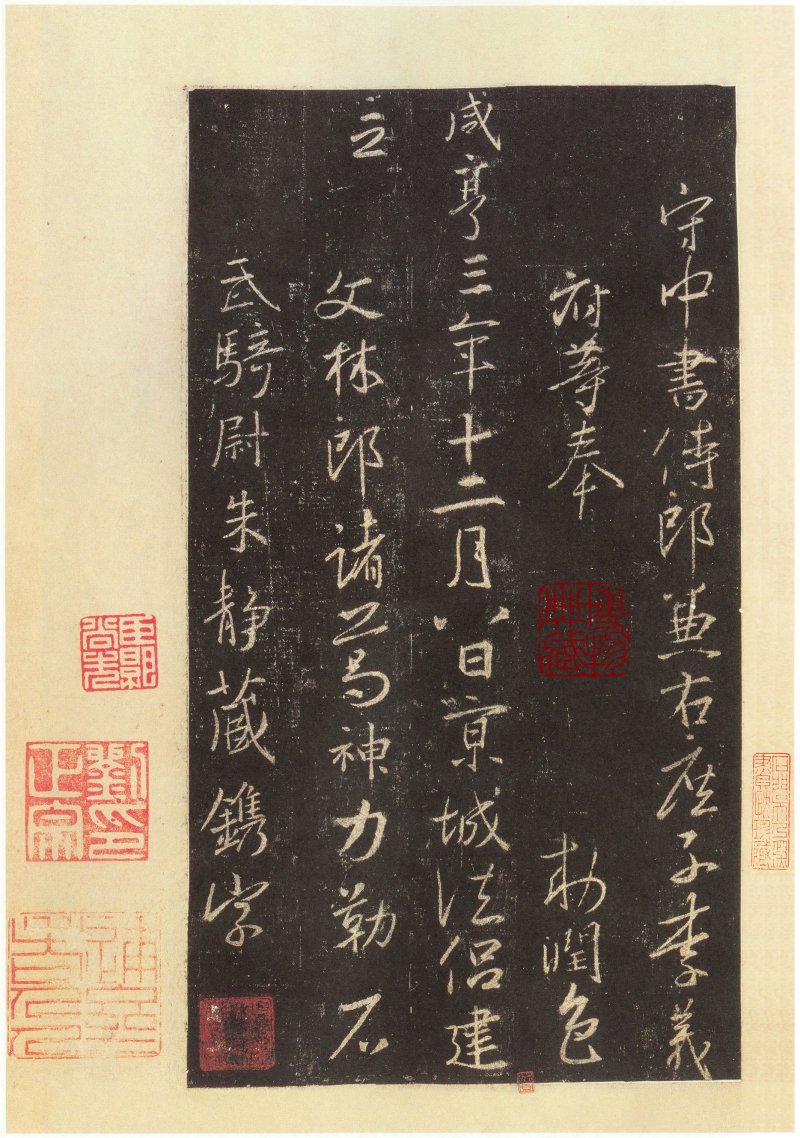 守中書侍郎兼右庶子李義
府等奉 勅潤色
咸亨三年十二月八日京城法侶建
立 文林郎諸葛神力勒石
武騎尉朱靜藏鐫字